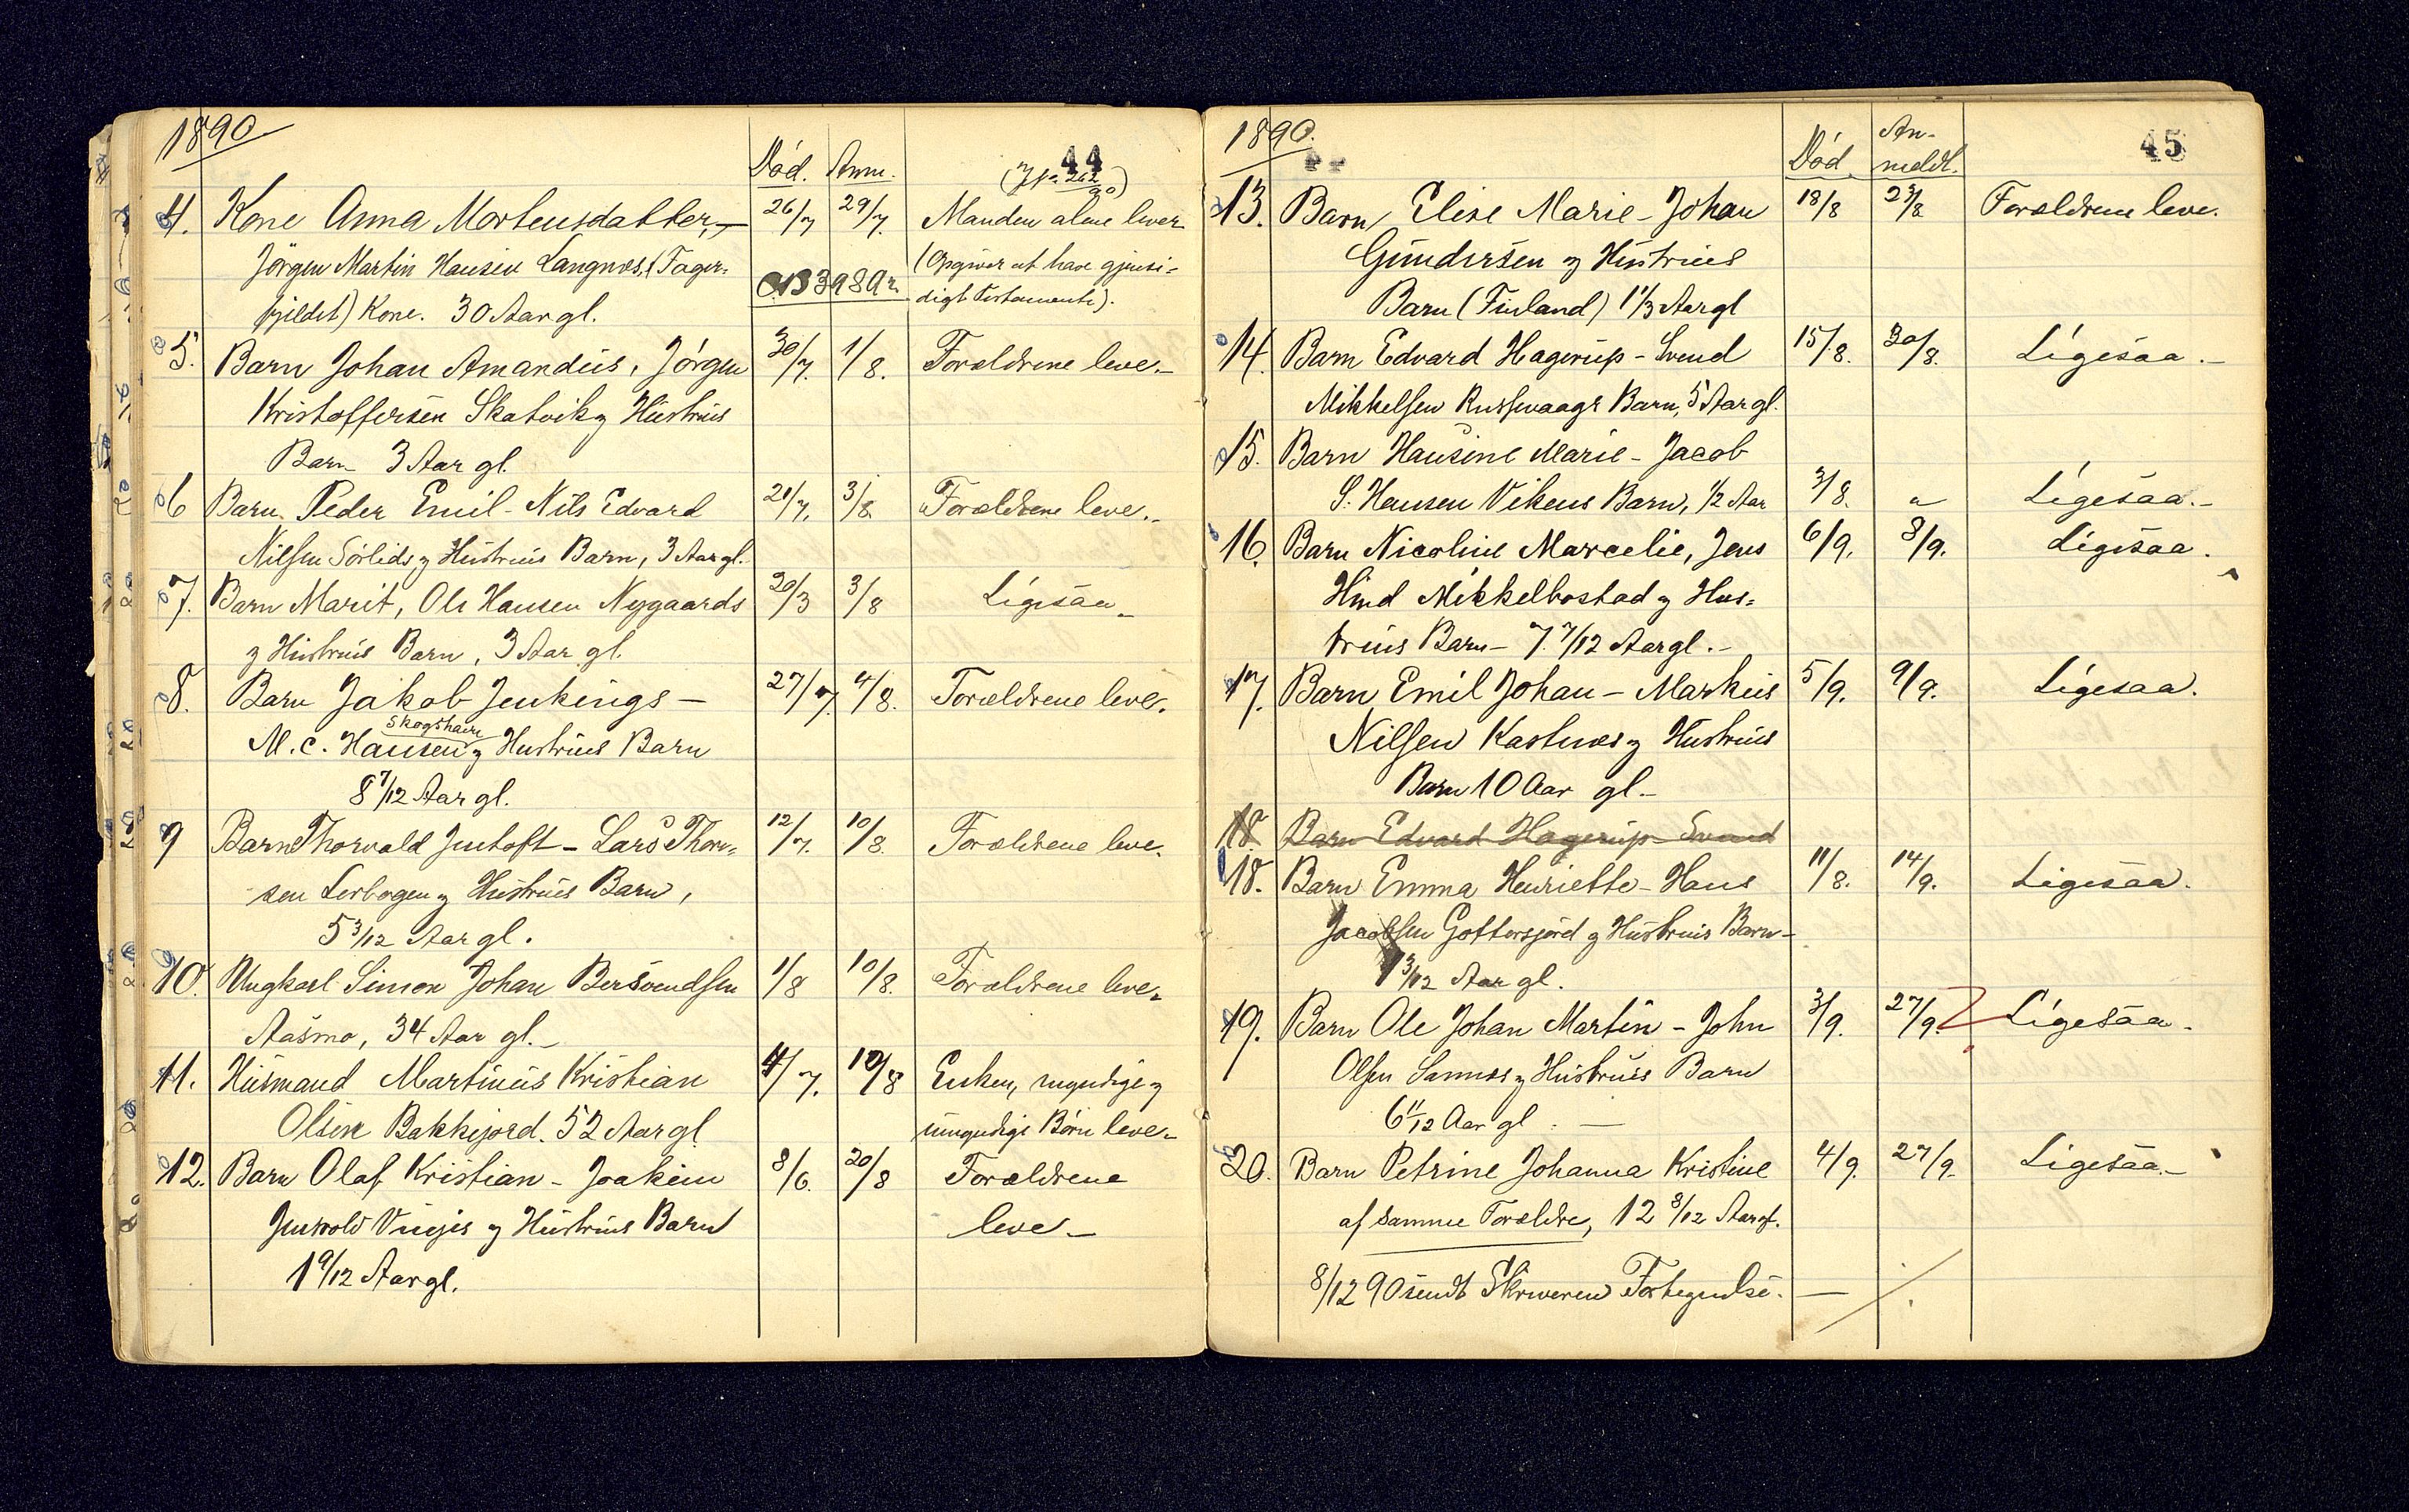 1890
44
Död. Anm.
4. Kone Anna Mortensdatter, - 26/7 29/7. Manden alene lever
Jörgen Martin Hansen Langnes, (Fager= (Opgiver at have gjensi=
digt Testamente).
fjeldet) Kone. 30 Aar gl.
5. Barn Johan Amandus, Jörgen 30/7. 1/8. Forældrene leve.-
Kristoffersen Skatvik og Hustrus
Barn 3 Aar gl.
6 Barn Peder Emil - Nils Edvard 21/7. 3/8 Forældrene leve.-
Nilsen Sörlids og Hustrus Barn, 3 Aar gl.
7. Barn Marit, Ole Hansen Nygaards 20/3 3/8 Ligesaa -
og Hustrus Barn, 3 Aar gl.
8. Barn Jakob Jenkings - 27/7. 4/8. Forældrene leve.
Skogshavn
M. C. Hansen og Hustrus Barn
8 7/12 Aar gl.
9 Barn Thorvald Justoft - Lars Thor= 12/7. 10/8. Forældrene leve.
sen Lerbogen og Hustrus Barn,
5 3/12 Aar gl.
10. Ungkarl Simon Johan Bersvendsen 1/8 10/8. Forældrene leve-
Aasmo, 34 Aar gl. -
11. Husmand Martinus Kristian 4/7. 10/8 Enken, myndige og
Olsen Bakkejord. 52 Aar gl umyndige Börn leve-
12. Barn Olaf Kristian - Joakim 8/6. 20/8 Forældrene
Vinjes og Hustrus Barn leve -
1 9/12 Aar gl.
1890.
45
Död An-
meldt.
13. Barn Elise Marie - Johan 18/8 Forældrene leve.
Gundersen og Hustrus
Barn (Finland) 1 1/3 Aar gl
14. Barn Edvard Hagerup - Svend 15/8. 30/8. Ligesaa. -
Mikkelsen Russevaags Barn, 5 Aar gl.
15. Barn Hansine Marie - Jacob
S. Hansen Vikens Barn, 1/2 Aar 3/8. " Ligesaa. -
16. Barn Nicoline Marcelie, Jens 6/9. 8/9. Ligesaa.
Hind Mikkelbostad og Hus=
trus Barn - 7. 7/12 Aar gl. -
17. Barn Emil Johan - Markus 5/9. 9/9. Ligesaa.
Nilsen Kastnes og Hustrus
Barn 10 Aar gl. -
18. Barn Edvard Hagerup Svend
18. Barn Emma Henriette - Hans 11/8. 14/9. Ligesaa.
Jacobsen Gottersjord og Hustrus Barn -
1 3/12 Aar gl.
19. Barn Ole Johan Martin - John 3/9. 27/9. Ligesaa -
Olsen Sannes og Hustrus Barn
6 11/12 Aar gl. -
20. Barn Petrine Johanna Kristine 4/9. 27/9. Ligesaa. -
af samme Forældre, 12 8/12 Aar gl.
8/12 90 sendt Skriveren Fortegnelse. -